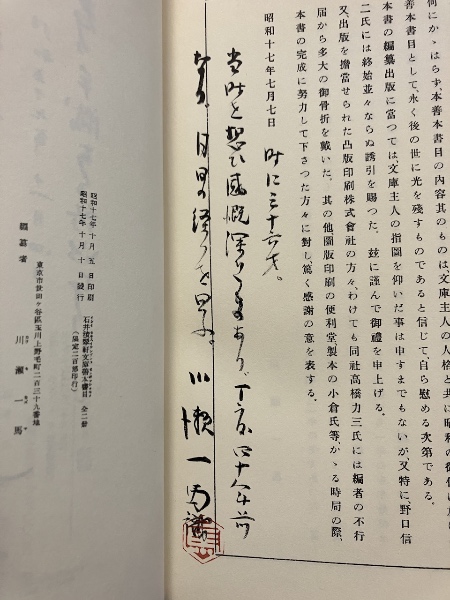 何にかゝはらず、本善本書目の內容其のものは、文庫主人の人格と共に昭和の
善本書目として、永く後の世に光を殘すものであると信じて、自ら慰める次第である。
本書の編纂出版に當つては、文庫主人の指圖を仰いだ事は申すまでもないが、又特に、野口信
二氏には終始並々ならぬ誘引を賜つた。玆に謹んで御禮を申上げる。
又、出版を擔當せられた凸版印刷株式會社の方々、わけても同社高橋力三氏には編者の不行
屆から多大の御骨折を戴いた。其の他圖版印刷の便利堂、製本の小倉氏等、かゝる時局の際、
本書の完成に努力して下さつた方々に對し、篤く感謝の意を表する。
昭和十七年七月七日
時に三十六才。
当時を想ひ感慨深きものあり。丁度四十八年前
なり。日日の経つを思ふ。
川瀬一馬識
昭和十七年十月五日印刷
昭和十七年十月十日發行
石井積翠軒文庫善本書目 全二冊
(限定二百部印行)
編纂者
東京市世田ヶ谷區玉川上野毛町二百三十九番地
川瀨一馬